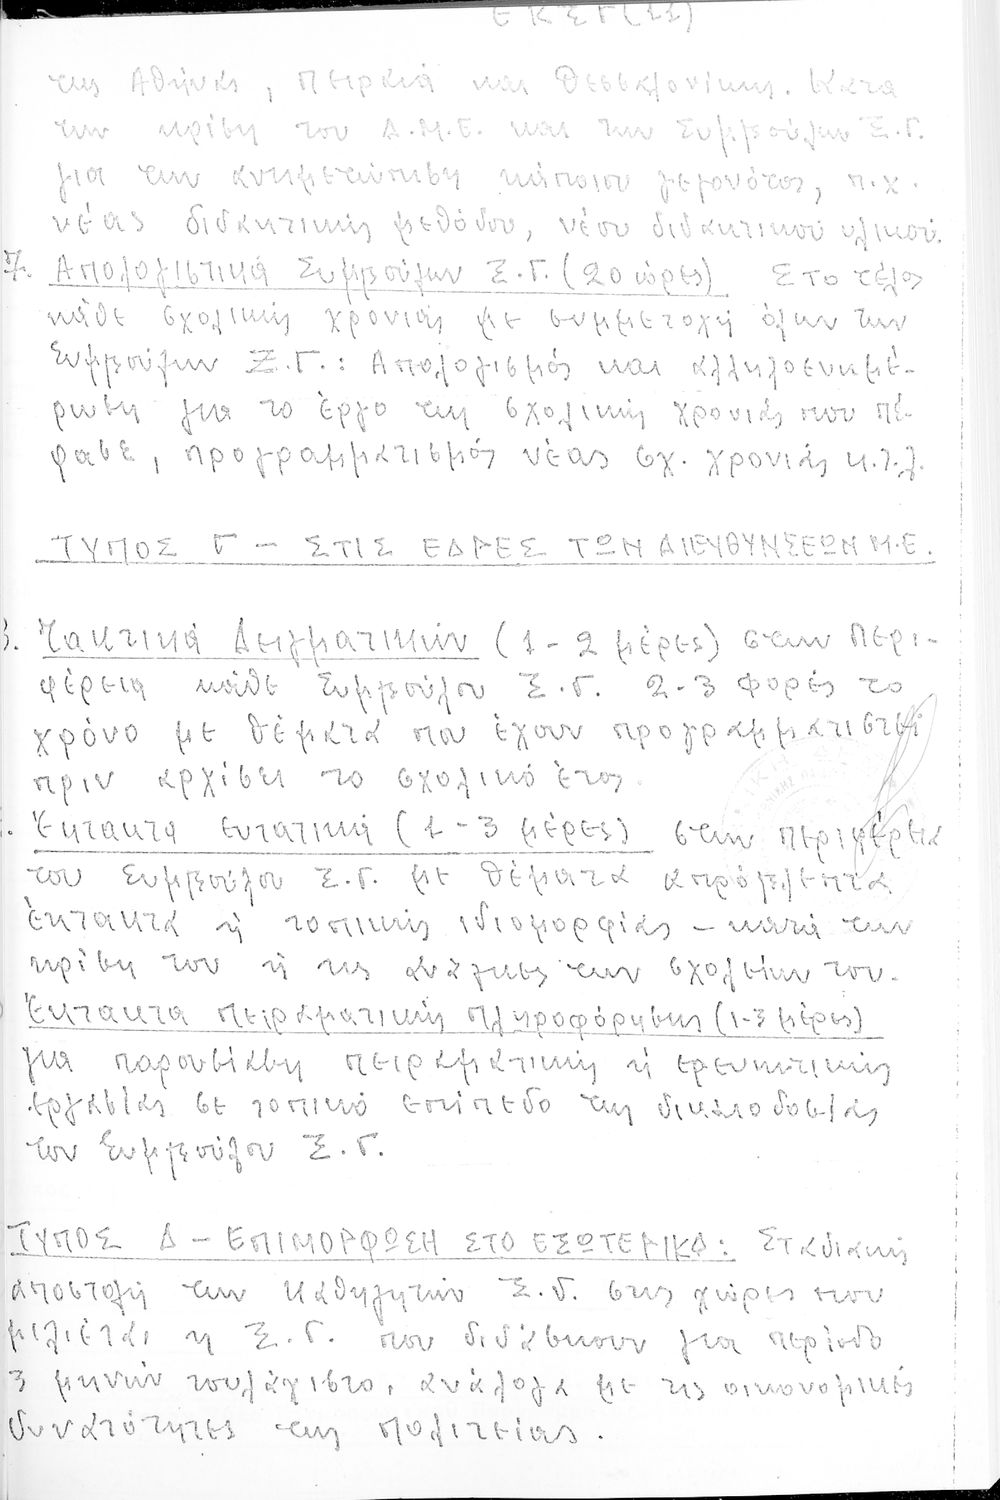 ΕΚΞΓ(11)
της Αθήνας, Πειραιά και Θεσσαλονίκης. Κατά
την κρίση του Δ.Μ.Ε. και των Συμβούλων Ξ.Γ.
για την αντιμετώπιση κάποιου γεγονότος, π.χ.
νέας διδακτικής μεθόδου, νέου διδακτικού υλικού.
7. Απολογιστικά Συμβούλων Ξ.Γ. (20 ώρες) Στο τέλος
κάθε σχολικής χρονιάς με συμμετοχή όλων των
Συμβούλων Ξ.Γ.: Απολογισμός και αλληλοενημέ-
ρωση για το έργο της σχολικής χρονιάς που πέ-
ρασε, προγραμματισμός νέας σχ. χρονιάς κ.τ.λ.
ΤΥΠΟΣ Γ - ΣΤΙΣ ΕΔΡΕΣ ΤΩΝ ΔΙΕΥΘΥΝΣΕΩΝ Μ.Ε.
Τακτικά Δειγματικών (1-2 μέρες) στην Περι-
φέρεια κάθε Συμβούλου Ξ.Γ. 2-3 φορές το
χρόνο με θέματα που έχουν προγραμματιστεί
πριν αρχίσει το σχολικό έτος.
Έκτακτα εντατικά (1-3 μέρες) στην περιφέρεια
του Συμβούλου Ξ.Γ. με θέματα απρόβλεπτα
έκτακτα ή τοπικής ιδιομορφίας - κατά την
κρίση του ή τις ανάγκες των σχολείων του.
Έκτακτα πειραματικής πληροφόρησης (1-3 μέρες)
για παρουσίαση πειραματικής ή ερευνητικής
εργασίας σε τοπικό επίπεδο της δικαιοδοσίας
του Συμβούλου Ξ.Γ.
ΤΥΠΟΣ Δ - ΕΠΙΜΟΡΦΩΣΗ ΣΤΟ ΕΞΩΤΕΡΙΚΟ: Σταδιακή
αποστολή των Καθηγητών Ξ.Γ. στις χώρες που
μιλιέται η Ξ.Γ. που διδάσκουν για περίοδο
3 μηνών τουλάχιστο, ανάλογα με τις οικονομικές
δυνατότητες της Πολιτείας.